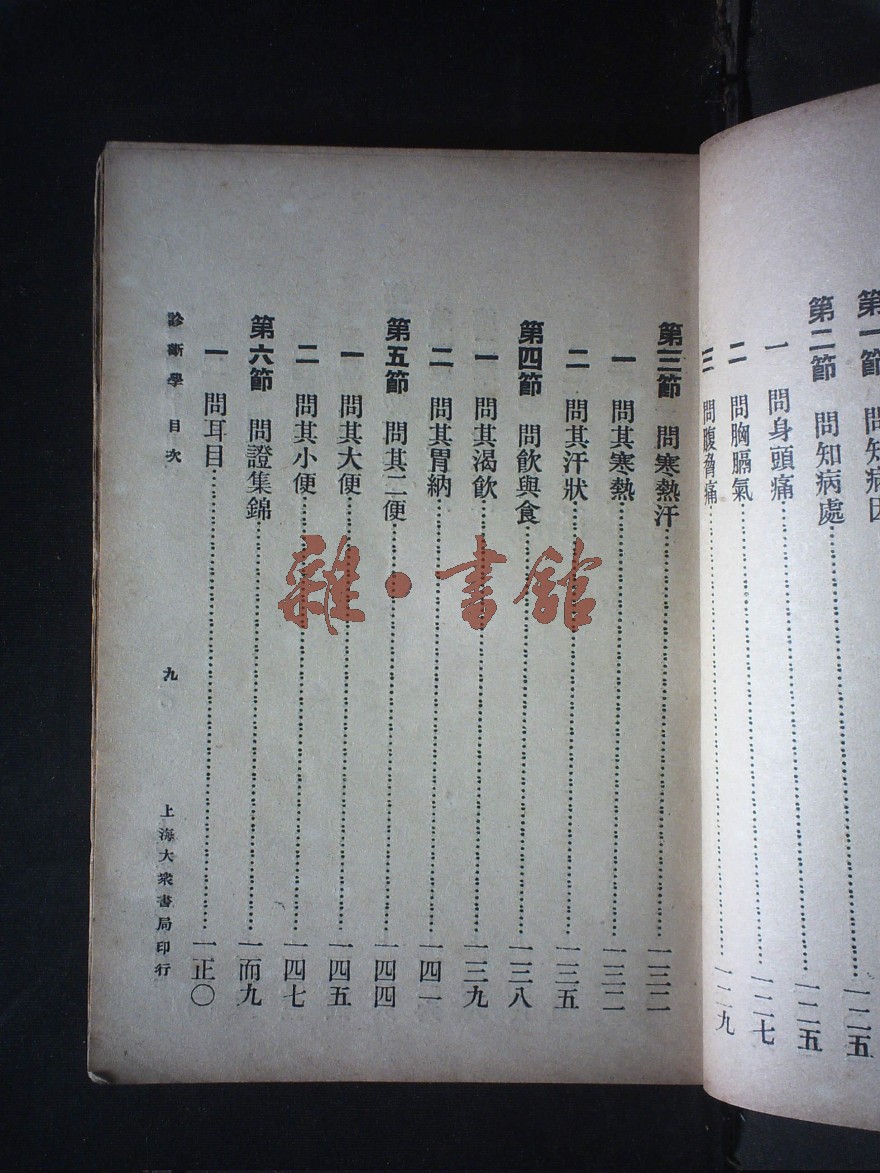 第一節 問知病因……一二五
第二節 問知病處……一二五
一 問身頭痛……一二七
二 問胸膈氣……一二九
三 問腹脅痛……
第三節 問寒熱汗……一三二
一 問其寒熱……一三二
二 問其汗狀……一三五
第四節 問飲與食……一三八
一 問其渴飲……一三九
二 問其胃納……一四一
第五節 問其二便……一四四
一 問其大便……一四五
二 問其小便……一四七
第六節 問證集錦……一而九
一 問耳目……一正〇
診斷學 目次 九 上海大衆書局印行
雜·書館